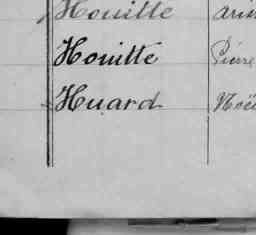 Houitte
Houitte Pierre
Huard Noël